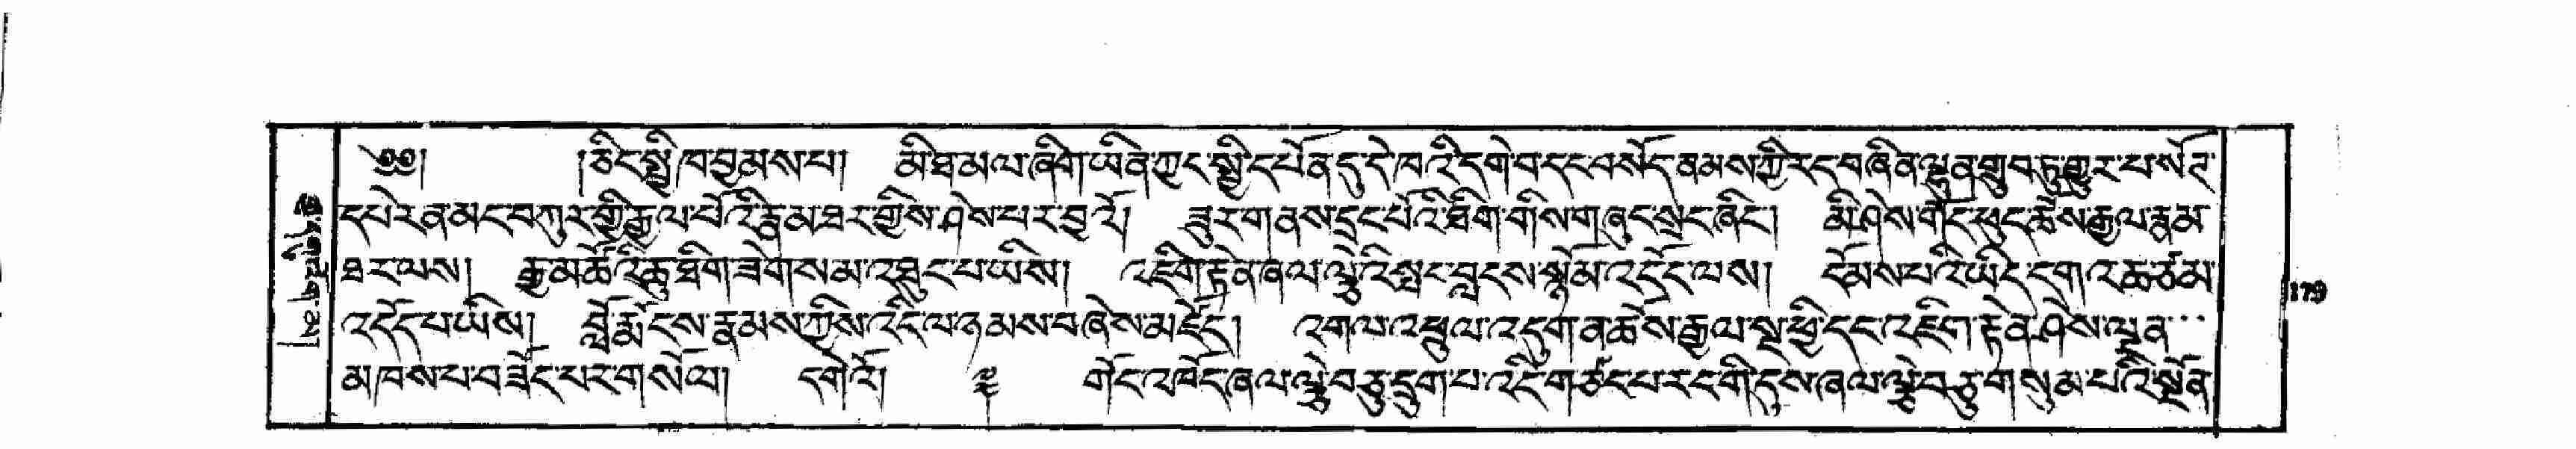 ༄༅། །ཅིང་སྤྱི་ཁ་བྱམས་པ། མི་ཐ་མལ་ཞིག་ཡིན་ཀྱང་སྤྱི་དཔོན་དུ་དེ་ཁའི་དགེ་བ་དང་བསོད་ནམས་ཀྱི་རང་བཞིན་ལྷུན་གྲུབ་ཏུ་གྱུར་པ་སོ༷
དཔེར་ན་མང་བཀུར་གྱི་རྒྱལ་པོའི་རྣམ་ཐར་གྱིས་ཤེས་པར་བྱའོ། ཟུར་གནས་དྲང་པོའི་ཐིག་གིས་གཞུང་སྲང་ཞིང་། མི་ཤེས་གོང་ཕུང་ཆོས་རྒྱལ་རྣམ་
ཐར་ལས། རྒྱ་མཚོའི་ཆུ་ཐིག་ཟེགས་མ་འཐུང་པ་ཡིས། འཇིག་རྟེན་ཞལ་ལྕེའི་སྤང་བླངས་སྙོམ་འདོང་ལས། ངོམས་པའི་ཡིད་དག་འཆ་ཙམ་
འདོད་པ་ཡིས། བློ་རྨོངས་རྣམས་ཀྱིས་འདི་ལ་ཉམས་བཞེས་མཛོད། འགལ་འཕྲུལ་འདུག་ན་ཆོས་རྒྱལ་སྔ་ཕྱི་དང་འཇིག་རྟེན་ཤེས་ལྡན་
མཁས་པ་བཟོད་པར་གསོལ། དགེའོ། གོང་འཁོད་ཞལ་ལྕེ་བཅུ་དྲུག་པ་འདི་གཙང་པ་རང་གི་དུས་ཞལ་ལྕེ་བཅུ་གསུམ་པའི་སྔོན་
179